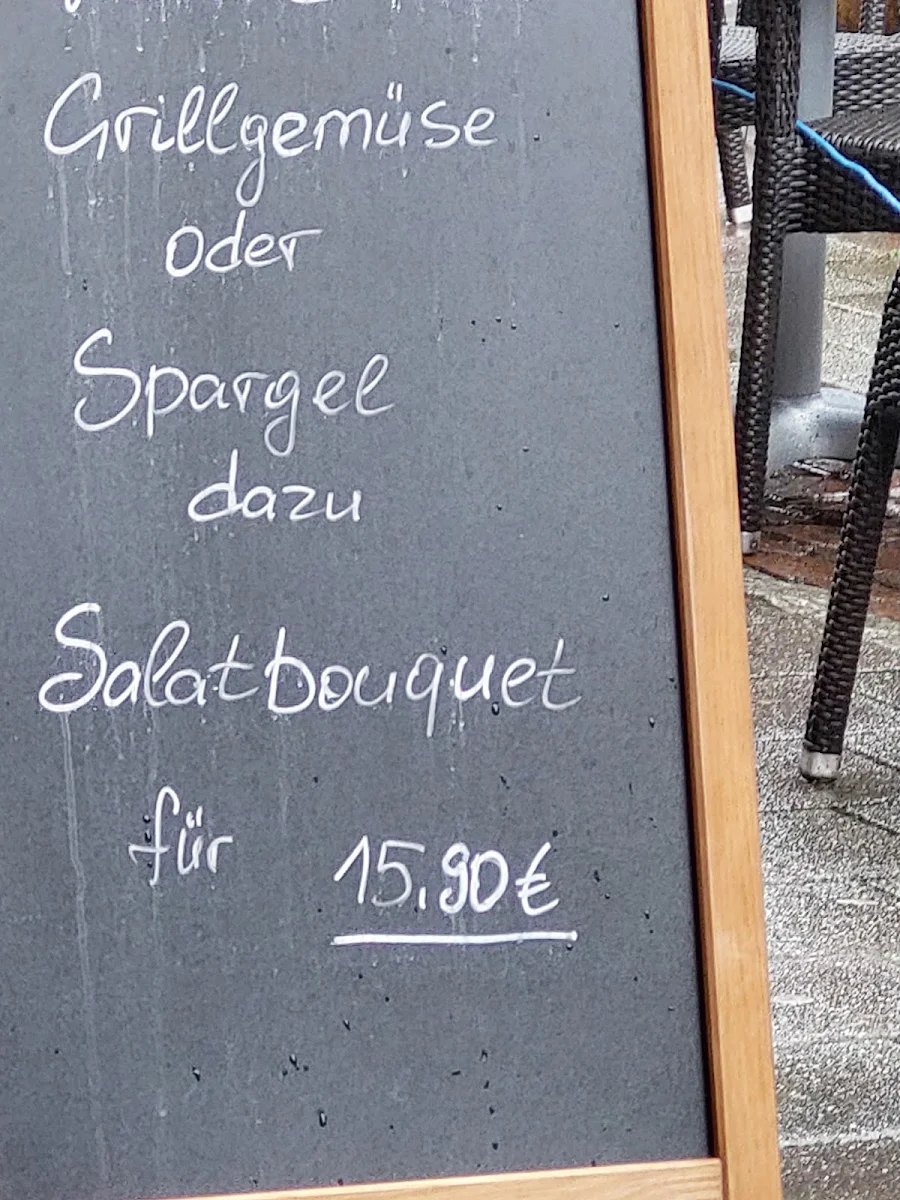 Grillgemüse
oder
Spargel
dazu
Salatbouquet
für 15,90€